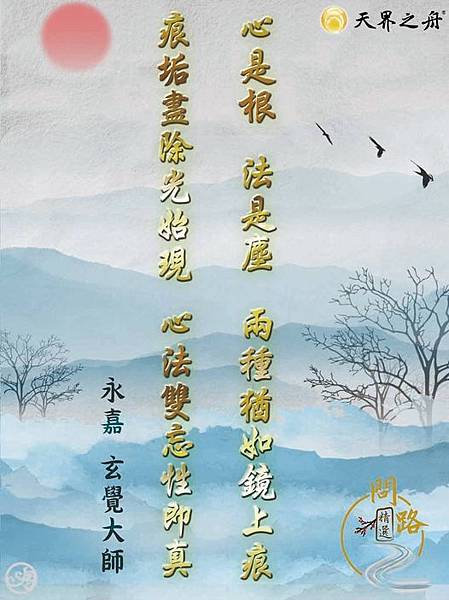 天界之舟
心是根 法是塵 兩種猶如鏡上痕
痕垢盡除光始現 心法雙忘性即真
永嘉 玄覺大師
問路
精選